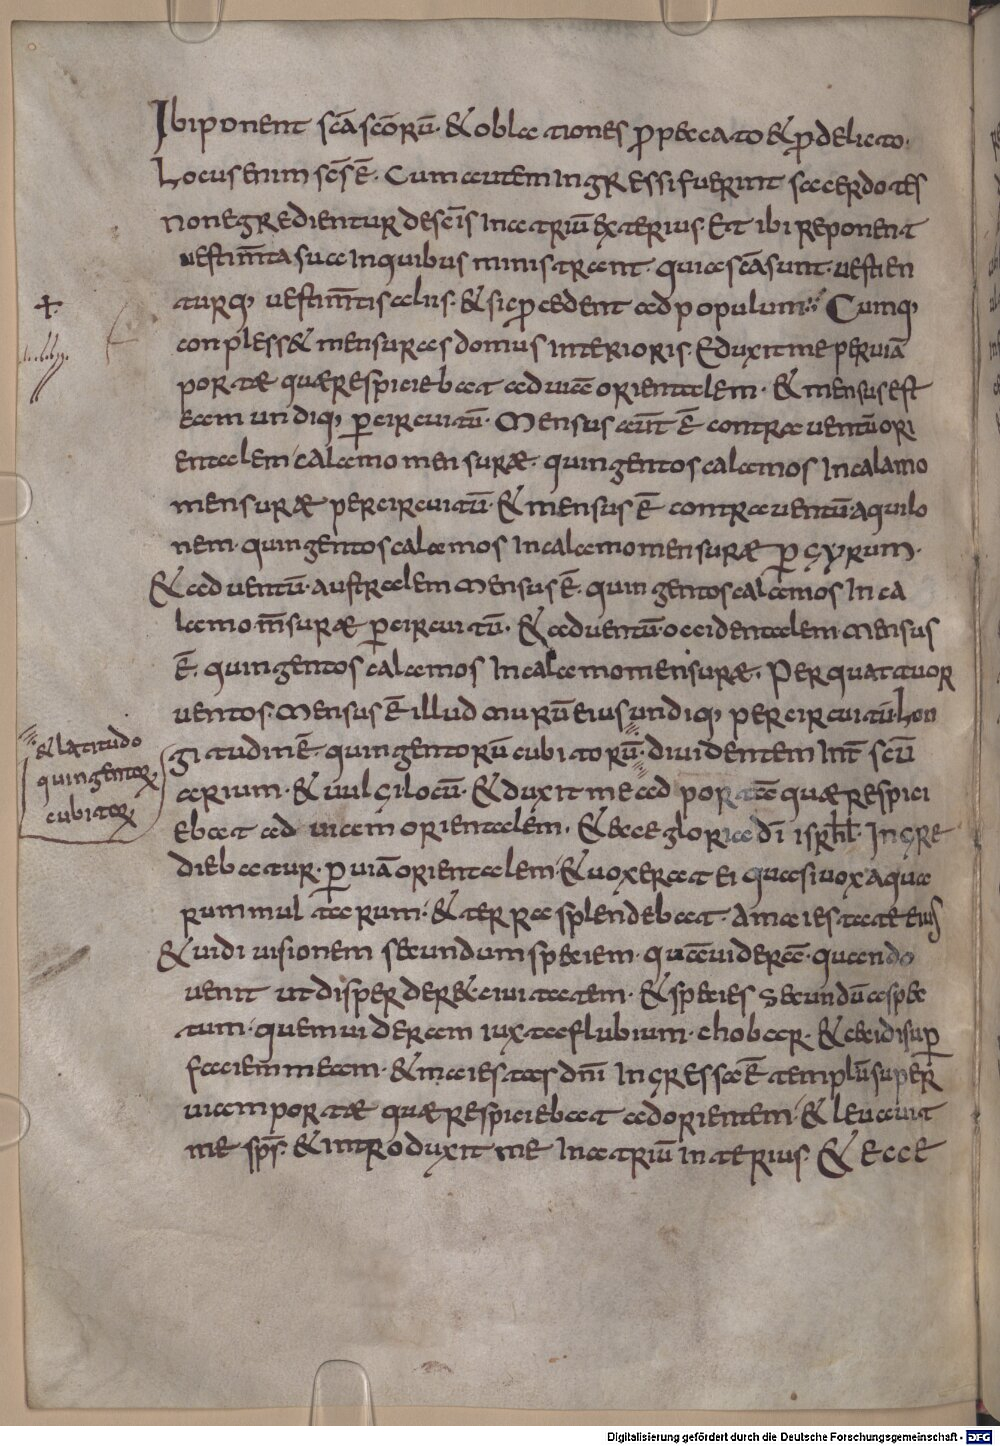 Ibi ponent sc̄a scōrū. & oblationes p̱ peccato & p̱ delicto.
Locus enim sc̄s ē. Cum autem ingressi fuerint sacerdotes
non egredientur de sc̄is in atriū exterius. Et ibi reponent
uestim̄ta sua in quibus ministrant. quia sc̄a sunt. uestien
turq; uestim̄tis aliis. & sic p̱cedent ad populum. Cumq;
conpless& mensuras domus interioris. Eduxit me per uiā
portæ quæ respiciebat ad uiā orientalem. & mensus est
eam undiq; p̱ circuitū. Mensus aūt ē contra uentū ori
entalem calamo mensuræ. quingentos calamos in calamo
mensuræ per circuitū. & mensus ē contra uentū aquilo
nem. quingentos calamos in calamo mensuræ p̱ gyrum.
& ad uentū australem mensus ē. quingentos calamos in ca
lamo m̄suræ p̱ circuitū. & ad uentū occidentalem mensus
ē. quingentos calamos in calamo mensuræ. Per quattuor
uentos mensus ē illud murū eius undiq; per circuitū. Lon
gitudinē. quingentorū cubitorū. diuidentem int̄ scū
& latitudo
quingentoꝝ
cubitoꝝ
arium. & uulgi locū. & duxit me ad portā quæ respici
ebat ad uiam orientalem. & ecce gloria dī isrhl̄. Ingre
diebatur. p̱ uiā orientalem. & uox erat ei quasi uox aqua
rum multarum. & terra splendebat. A maiestate eius
& uidi uisionem secundum speciem. quā uiderā. quando
uenit ut disperder& ciuitatem. & species secundū aspec
tum. quem uideram iuxta flubium. chobar. & cecidi sup̱
faciem meam. & maiestas dn̄i ingressa ē templū super
uiam portæ quæ respiciebat ad orientem. & leuauit
me sp̄s. & introduxit me in atriū interius. & ecce
Digitalisierung gefördert durch die Deutsche Forschungsgemeinschaft - DFG